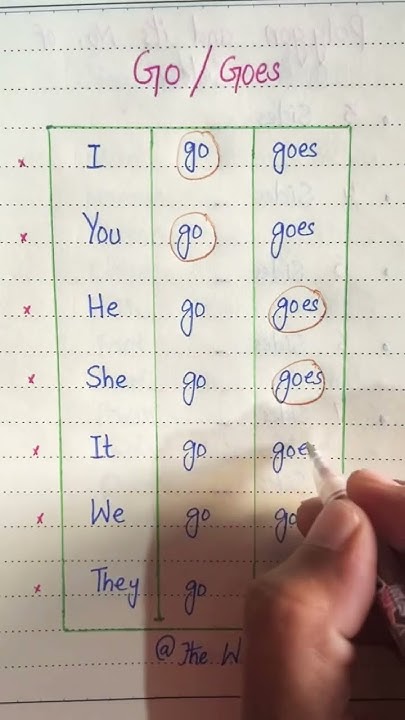 Go / Goes
I go goes
You go goes
He go goes
She go goes
It go goes
We go
They go
@ The